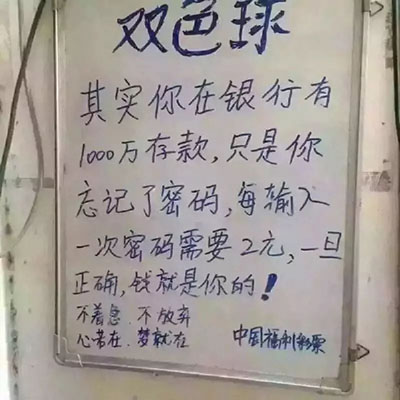 双色球
其实你在银行有
1000万存款,只是你
忘记了密码,每输入
一次密码需要2元,一旦
正确,钱就是你的!
不着急.不放弃
心若在.梦就在
中国福利彩票